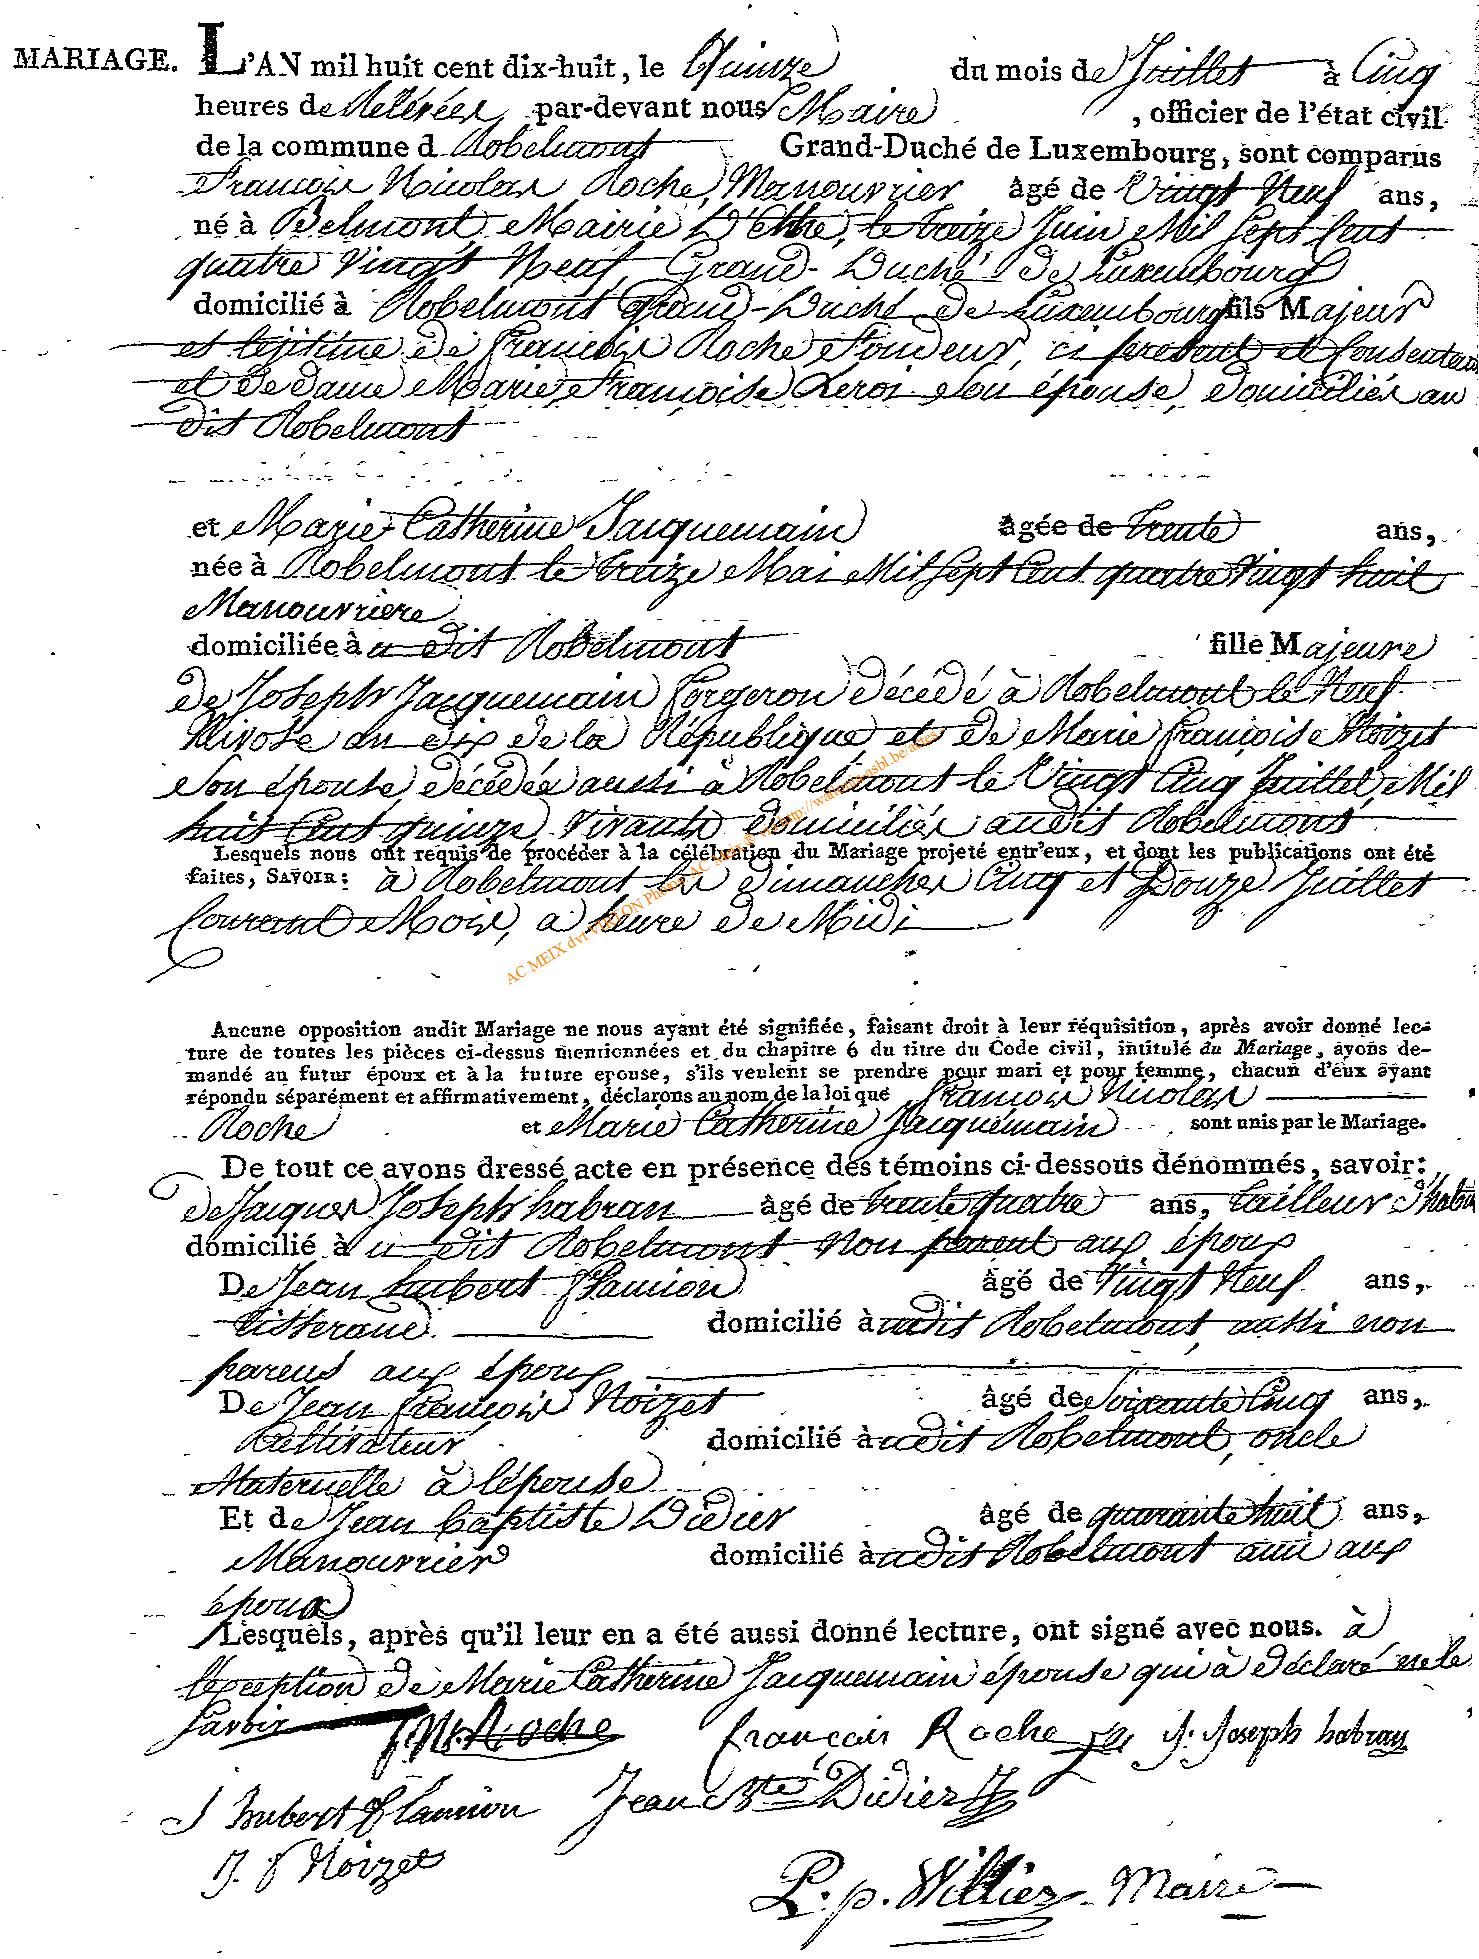 MARIAGE. L'AN mil huit cent dix-huit, le Quinze du mois de Juillet à Cinq
heures de Relévées par-devant nous Maire , officier de l'état civil
de la commune d Robelmont Grand-Duché de Luxembourg, sont comparus
François Nicolas Roche, Manouvrier âgé de Vingt Neuf ans,
né à Belmont, Mairie D'Ethe, le treize Juin Mil Sept Cent
quatre Vingt Neuf, Grand-Duché de Luxembourg
domicilié à Robelmont Grand-Duché de Luxembourg fils Majeur
et lejitime de François Roche Fondeur, ci present et Consentent
et de dame Marie Françoise Leroi son épouse, domiciliés au
dit Robelmont
et Marie Catherine Jacquemain âgée de trente ans,
née à Robelmont le treize Mai Mil Sept Cent quatre Vingt huit
Manouvriere
domiciliée à u dit Robelmont fille Majeure
de Joseph Jacquemain Forgeron décédé à Robelmont le Neuf
Nivose an dix de la République, et de Marie Françoise Noizet
son épouse décédée aussi à Robelmont le Vingt Cinq Juillet Mil
huit Cent quinze, Vivants domiciliés audit Robelmont
Lesquels nous ont requis de procéder à la célébration du Mariage projeté entr'eux, et dont les publications ont été
faites, SAVOIR: à Robelmont les dimanches Cinq et Douze Juillet
Courant Mois, a heure de Midi
AC MEIX dvt VIRTON
Aucune opposition audit Mariage ne nous ayant été signifiée, faisant droit à leur réquisition, après avoir donné lec-
ture de toutes les pièces ci-dessus mentionnées et du chapitre 6 du titre du Code civil, intitulé du Mariage, avons de-
mandé au futur époux et à la future epouse, s'ils veulent se prendre pour mari et pour femme, chacun d'eux ayant
répondu séparément et affirmativement, déclarons au nom de la loi que François Nicolas
Roche et Marie Catherine Jacquemain sont unis par le Mariage.
De tout ce avons dressé acte en présence des témoins ci-dessous dénommés, savoir:
de Jacques Joseph habran âgé de trente quatre ans, tailleur d'habits
domicilié à u dit Robelmont Non parent aux époux
De Jean hubert Flamion âgé de Vingt Neuf ans,
tisserand domicilié à udit Robelmont, aussi non
parens aux époux
De Jean François Noizet âgé de Soixante Cinq ans,
Cultivateur domicilié à udit Robelmont, oncle
Maternelle à l'épouse
Et de Jean Baptiste Didier âgé de quarante huit ans,
Manouvrier domicilié à udit Robelmont ami aux
époux
Lesquels, après qu'il leur en a été aussi donné lecture, ont signé avec nous. à
l'exception de Marie Catherine Jacquemain épouse qui à déclaré ne le
savoir
f. N. Roche françois Roche J. Joseph habran
J hubert flamion Jean Bte Didier
J. f Noizet
P. p. Williez Maire